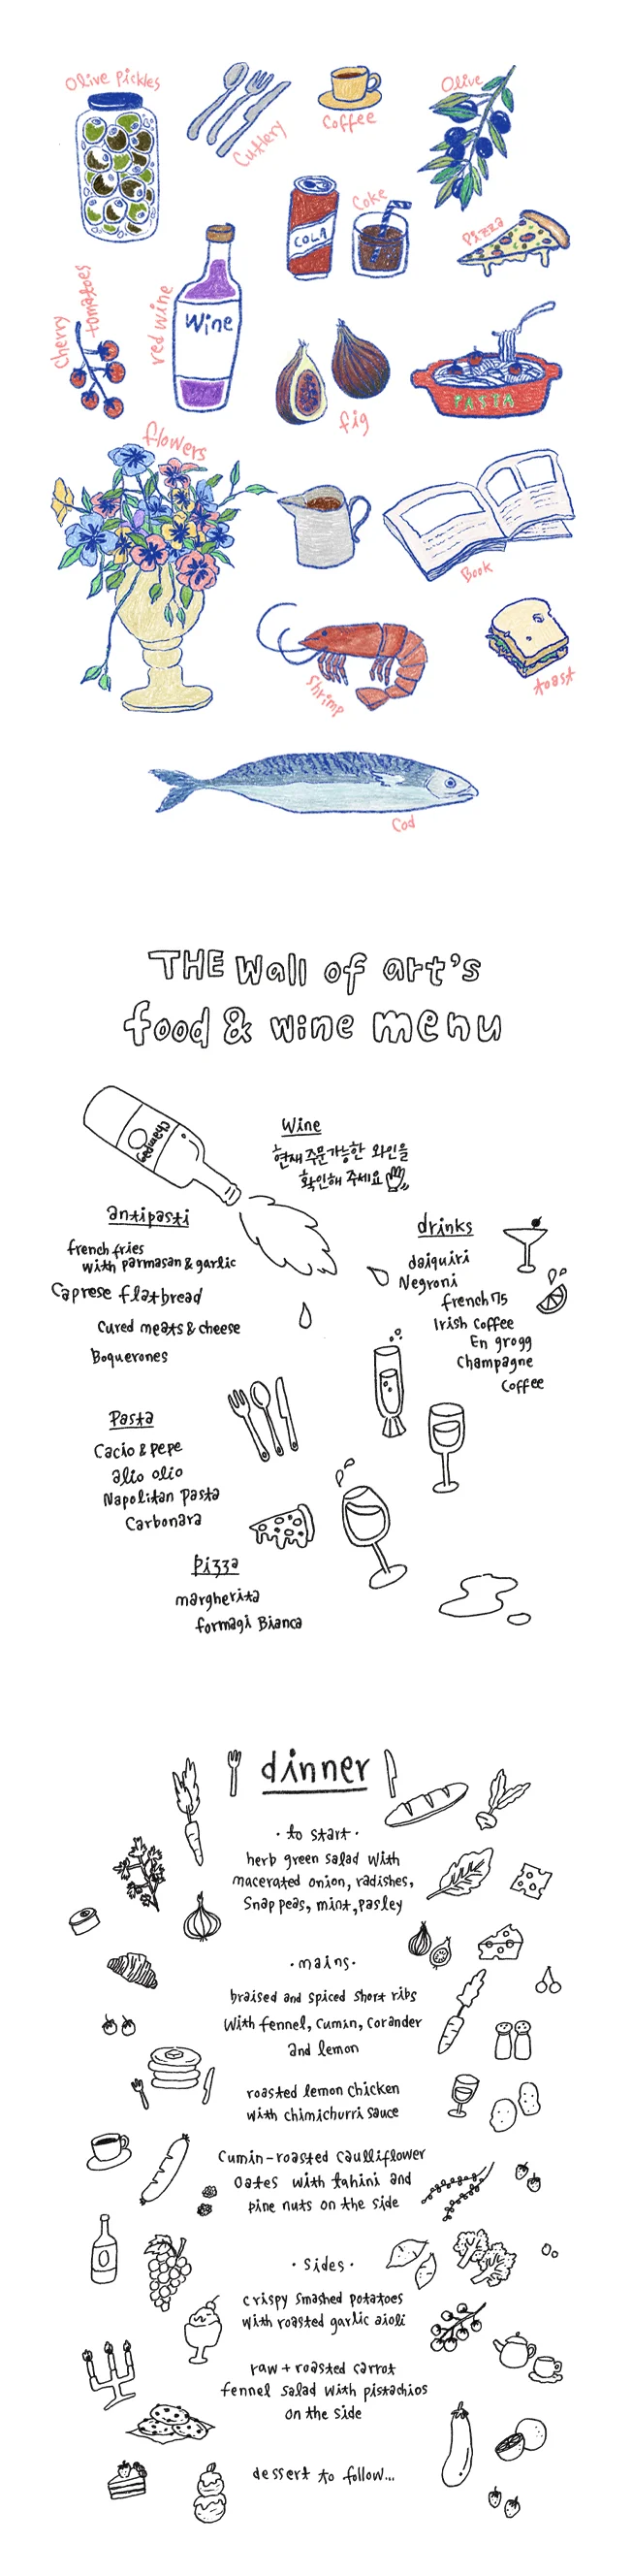 Olive Pickles
Cutlery
Coffee
Olive
Coke
COLA
Pizza
cherry
tomatoes
red wine
Wine
fig
PASTA
flowers
Book
Shrimp
toast
Cod
THE Wall of art's
food & wine menu
Champag
Wine
현재 주문가능한 와인을
확인해 주세요
antipasti
french fries
with parmasan & garlic
Caprese flatbread
Cured meats & cheese
Boquerones
drinks
daiquiri
Negroni
french 75
Irish Coffee
En grogg
Champagne
Coffee
Pasta
Cacio & pepe
alio olio
Napolitan Pasta
Carbonara
Pizza
margherita
formagi Bianca
dinner
· to start ·
herb green salad with
macerated onion, radishes,
Snap peas, mint, pasley
· mains ·
braised and spiced short ribs
With fennel, Cumin, Corander
and lemon
roasted lemon Chicken
with chimichurri sauce
Cumin-roasted Caulliflower
Oates with tahini and
pine nuts on the side
· Sides ·
crispy smashed potatoes
with roasted garlic aioli
raw + roasted carrot
fennel salad with pistachios
on the side
dessert to follow...